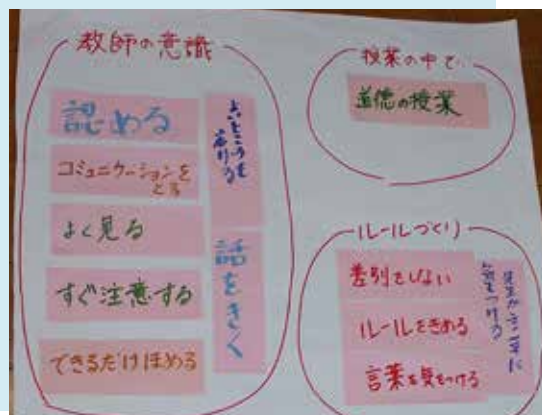 教師の意識
認める
コミュニケーションを
とる
よく見る
すぐ注意する
できるだけほめる
よいところを
見つける
話をきく
授業の中で
道徳の授業
ルールづくり
差別をしない
ルールをきめる
言葉を気をつける
先生が言葉に
気をつける